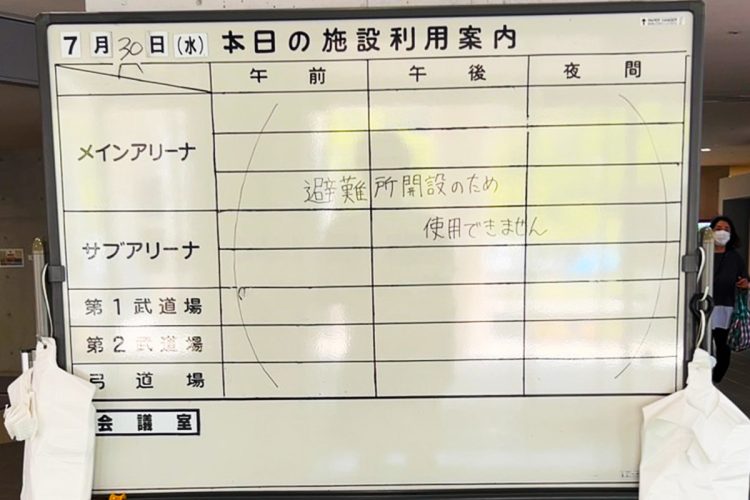 7月30日(水) 本日の施設利用案内
午前 午後 夜間
メインアリーナ
避難所開設のため
使用できません
サブアリーナ
第1武道場
第2武道場
弓道場
会議室